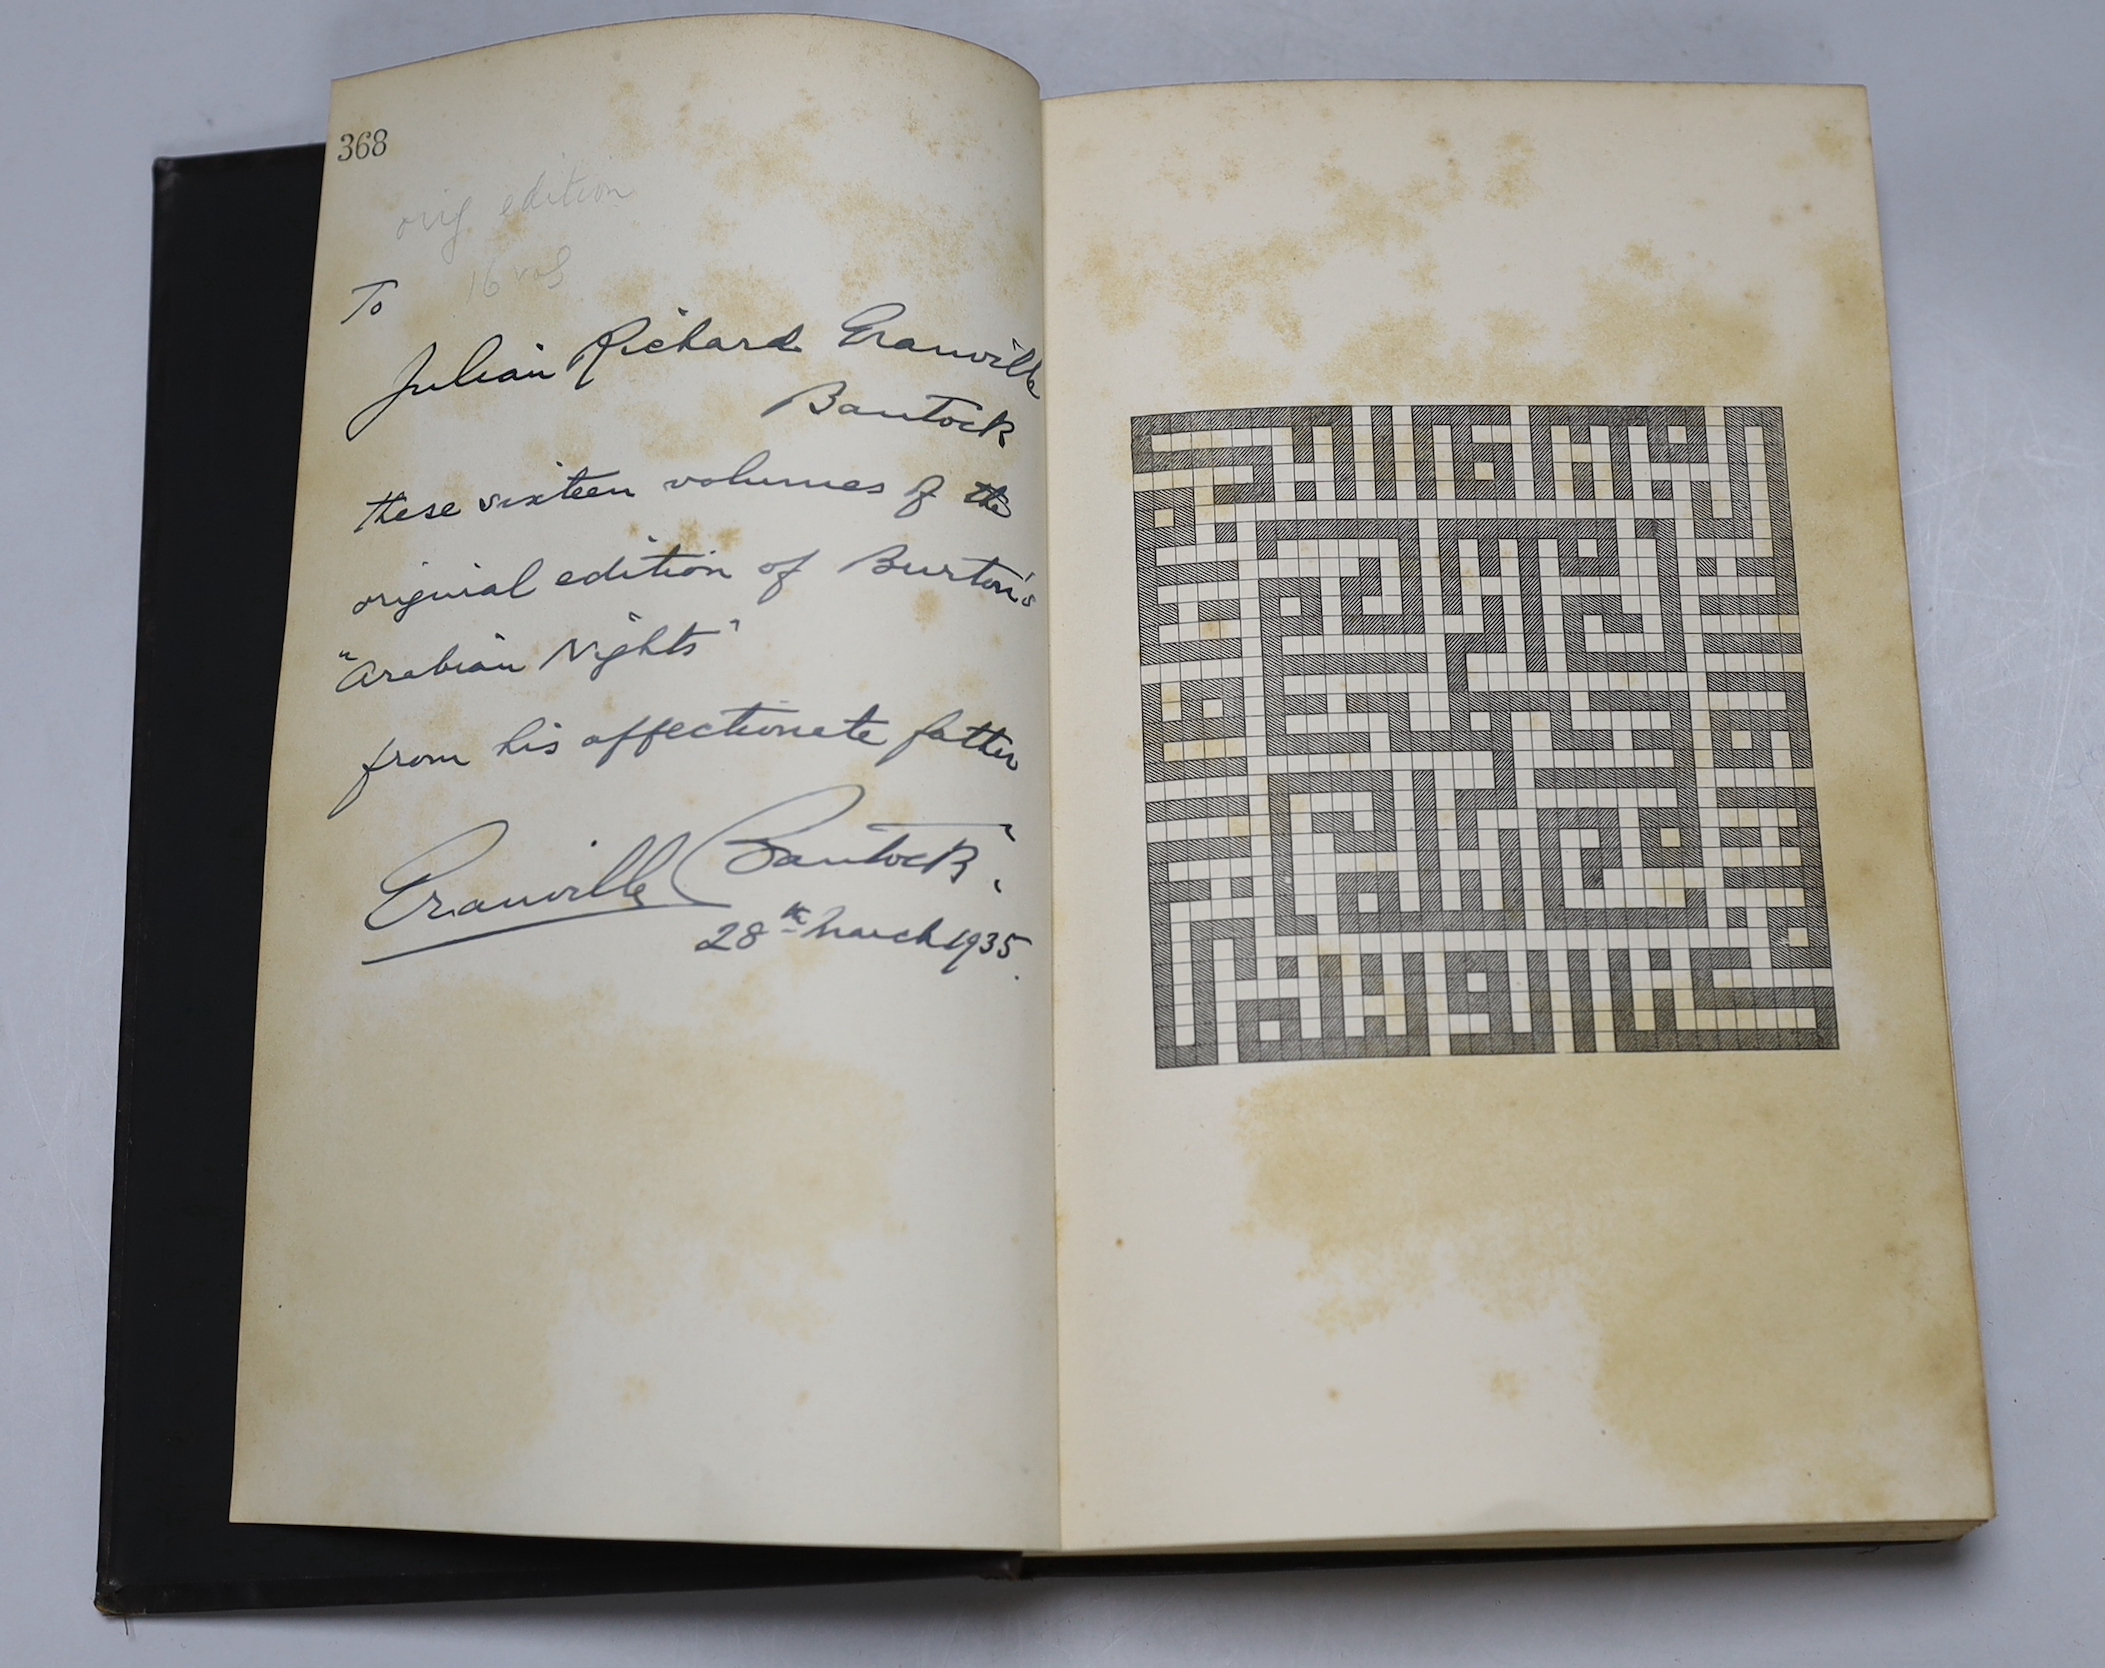 368
orig edition
16 vols
To
Julian Richard Granville
Bantock
these sixteen volumes of the
original edition of Burton's
"Arabian Nights"
from his affectionate father
Granville Bantock.
28th March 1935.